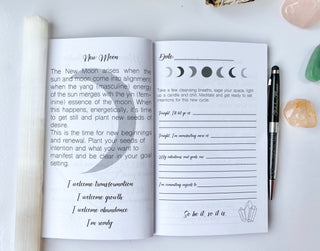 New Moon
The New Moon arises when the
sun and moon come into alignment;
when the yang (masculine) energy
of the sun merges with the yin (femi-
nine) essence of the moon. When
this happens, energetically, it's time
to get still and plant new seeds of
desire.
This is the time for new beginnings
and renewal. Plant your seeds of
intention and what you want to
manifest and be clear in your goal
setting.
I welcome transformation
I welcome growth
I welcome abundance
I'm ready
Date:
Take a few cleansing breaths, sage your space, light
up a candle and chill. Meditate and get ready to set
intentions for this new cycle.
Tonight, I'd let go of
Tonight, I'm reminding more in
My intentions and goals are
I'm committing myself to
So be it, so it is.